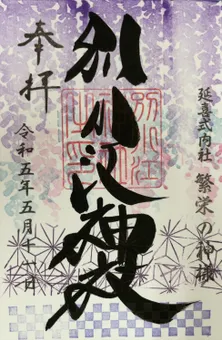 延喜式内社 繁栄の神様
別小江神社
奉拝
令和五年五月十一日
別小江